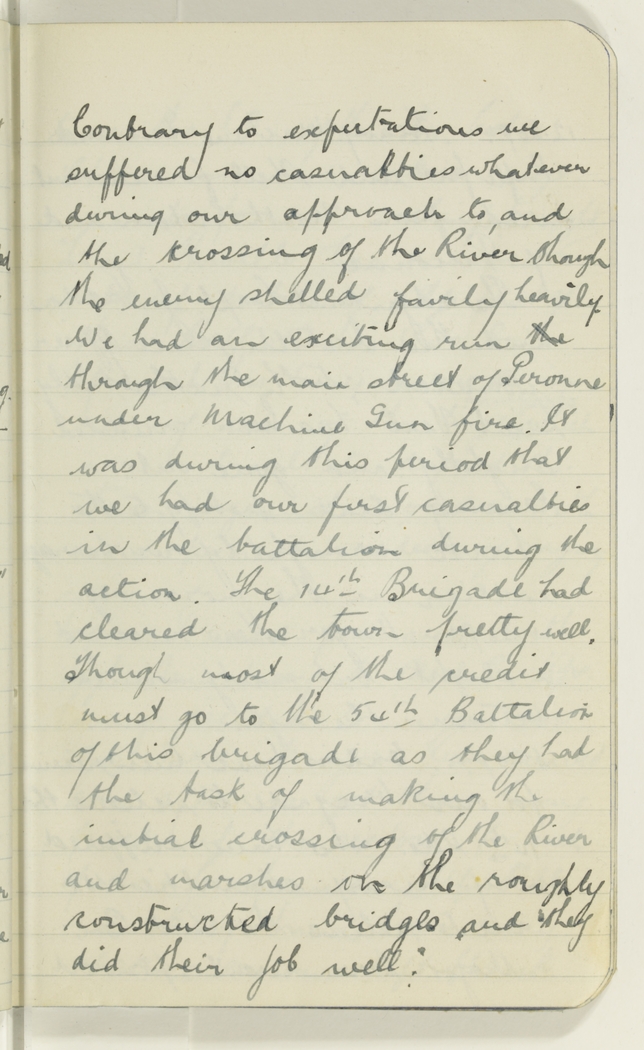 Contrary to expectations we
suffered no casualties whatever
during our approach to, and
the crossing of the River though
the enemy shelled fairly heavily.
We had an exciting run the
through the main street of Peronne
under Machine Gun fire. It
was during this period that
we had our first casualties
in the battalion during the
action. The 14th Brigade had
cleared the town pretty well.
Though most of the credit
must go to the 54th Battalion
of this brigade as they had
the task of making the
initial crossing of the River
and marshes on the roughly
constructed bridges and they
did their job well.